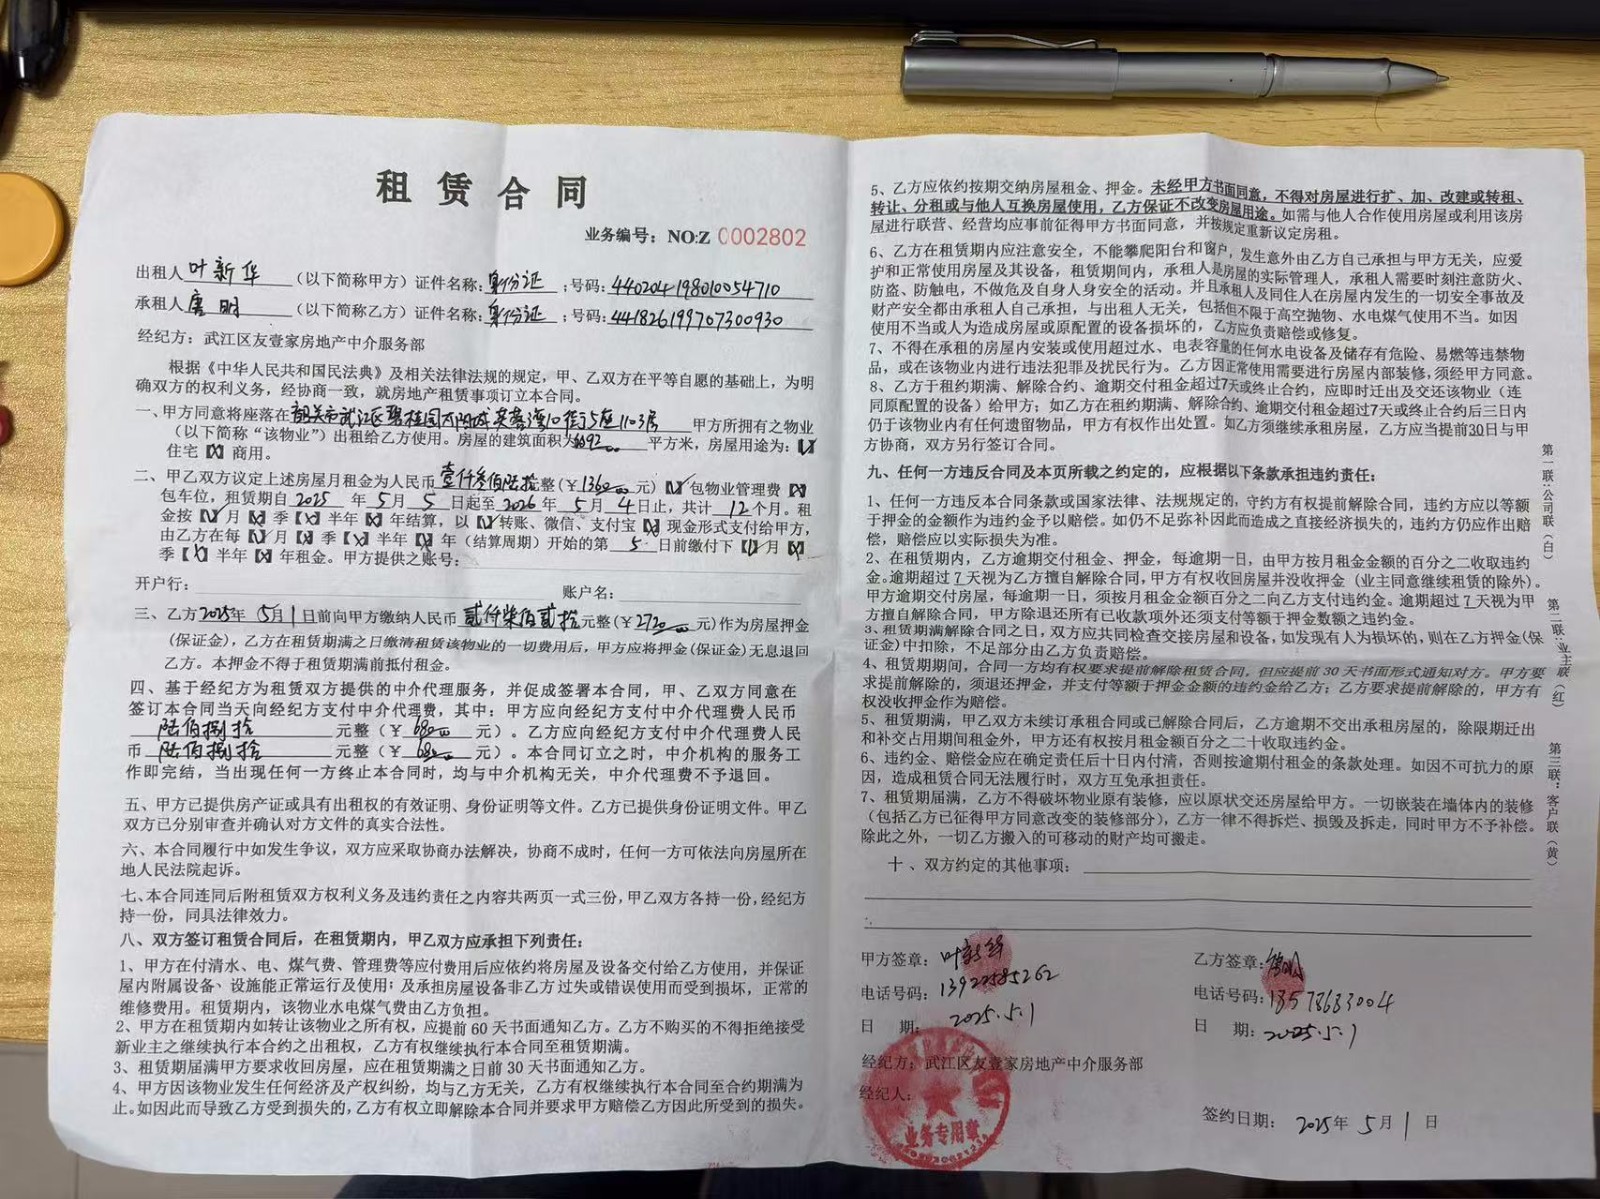 租赁合同
业务编号：NO:Z 0002802
出租人叶新华（以下简称甲方）证件名称：身份证；号码：440204198010054710
承租人唐明（以下简称乙方）证件名称：身份证；号码：441826199707300930
经纪方：武江区友壹家房地产中介服务部
根据《中华人民共和国民法典》及相关法律法规的规定，甲、乙双方在平等自愿的基础上，为明
确双方的权利义务，经协商一致，就房地产租赁事项订立本合同。
一、甲方同意将座落在韶关市武江区碧桂园太阳城芙蓉湾10街5座1103房 甲方所拥有之物业
（以下简称“该物业”）出租给乙方使用。房屋的建筑面积为 92 平方米，房屋用途为：【√】
住宅【X】商用。
二、甲乙双方议定上述房屋月租金为人民币壹仟叁佰陆拾整（￥1360.00元）【√】包物业管理费【X】
包车位，租赁期自2025年5月5日起至2026年5月4日止，共计12个月。租
金按【√】月【X】季【X】半年【X】年结算，以【√】转账、微信、支付宝【X】现金形式支付给甲方，
由乙方在每【√】月【X】季【X】半年【X】年（结算周期）开始的第5日前缴付下【√】月【X】
季【X】半年【X】年租金。甲方提供之账号：
开户行： 账户名：
三、乙方2025年5月1日前向甲方缴纳人民币贰仟柒佰贰拾元整（￥2720.00元）作为房屋押金
(保证金)，乙方在租赁期满之日缴清租赁该物业的一切费用后，甲方应将押金(保证金)无息退回
乙方。本押金不得于租赁期满前抵付租金。
四、基于经纪方为租赁双方提供的中介代理服务，并促成签署本合同，甲、乙双方同意在
签订本合同当天向经纪方支付中介代理费，其中：甲方应向经纪方支付中介代理费人民币
陆佰捌拾元整（￥680.00元）。乙方应向经纪方支付中介代理费人民
币陆佰捌拾元整（￥680.00元）。本合同订立之时，中介机构的服务工
作即完结，当出现任何一方终止本合同时，均与中介机构无关，中介代理费不予退回。
五、甲方已提供房产证或具有出租权的有效证明、身份证明等文件。乙方已提供身份证明文件。甲乙
双方已分别审查并确认对方文件的真实合法性。
六、本合同履行中如发生争议，双方应采取协商办法解决，协商不成时，任何一方可依法向房屋所在
地人民法院起诉。
七、本合同连同后附租赁双方权利义务及违约责任之内容共两页一式三份，甲乙双方各持一份，经纪方
持一份，同具法律效力。
八、双方签订租赁合同后，在租赁期内，甲乙双方应承担下列责任：
1、甲方在付清水、电、煤气费、管理费等应付费用后应依约将房屋及设备交付给乙方使用，并保证
屋内附属设备、设施能正常运行及使用；及承担房屋设备非乙方过失或错误使用而受到损坏，正常的
维修费用。租赁期内，该物业水电煤气费由乙方负担。
2、甲方在租赁期内如转让该物业之所有权，应提前60天书面通知乙方。乙方不购买的不得拒绝接受
新业主之继续执行本合约之出租权，乙方有权继续执行本合同至租赁期满。
3、租赁期届满甲方要求收回房屋，应在租赁期满之日前30天书面通知乙方。
4、甲方因该物业发生任何经济及产权纠纷，均与乙方无关，乙方有权继续执行本合同至合约期满为
止。如因此而导致乙方受到损失的，乙方有权立即解除本合同并要求甲方赔偿乙方因此所受到的损失。
5、乙方应依约按期交纳房屋租金、押金。未经甲方书面同意，不得对房屋进行扩、加、改建或转租、
转让、分租或与他人互换房屋使用，乙方保证不改变房屋用途。如需与他人合作使用房屋或利用该房
屋进行联营、经营均应事前征得甲方书面同意，并按规定重新议定房租。
6、乙方在租赁期内应注意安全，不能攀爬阳台和窗户，发生意外由乙方自己承担与甲方无关，应爱
护和正常使用房屋及其设备，租赁期间内，承租人是房屋的实际管理人，承租人需要时刻注意防火、
防盗、防触电，不做危及自身人身安全的活动。并且承租人及同住人在房屋内发生的一切安全事故及
财产安全都由承租人自己承担，与出租人无关，包括但不限于高空抛物、水电煤气使用不当。如因
使用不当或人为造成房屋或原配置的设备损坏的，乙方应负责赔偿或修复。
7、不得在承租的房屋内安装或使用超过水、电表容量的任何水电设备及储存有危险、易燃等违禁物
品，或在该物业内进行违法犯罪及扰民行为。乙方因正常使用需要进行房屋内部装修，须经甲方同意。
8、乙方于租约期满、解除合约、逾期交付租金超过7天或终止合约，应即时迁出及交还该物业（连
同原配置的设备）给甲方；如乙方在租约期满、解除合约、逾期交付租金超过7天或终止合约后三日内
仍于该物业内有任何遗留物品，甲方有权作出处置。如乙方须继续承租房屋，乙方应当提前30日与甲
方协商，双方另行签订合同。
九、任何一方违反合同及本页所载之约定的，应根据以下条款承担违约责任：
1、任何一方违反本合同条款或国家法律、法规规定的，守约方有权提前解除合同，违约方应以等额
于押金的金额作为违约金予以赔偿。如仍不足弥补因此而造成之直接经济损失的，违约方仍应作出赔
偿，赔偿应以实际损失为准。
2、在租赁期内，乙方逾期交付租金、押金，每逾期一日，由甲方按月租金金额的百分之二收取违约
金。逾期超过7天视为乙方擅自解除合同，甲方有权收回房屋并没收押金（业主同意继续租赁的除外）。
甲方逾期交付房屋，每逾期一日，须按月租金金额百分之二向乙方支付违约金。逾期超过7天视为甲
方擅自解除合同，甲方除退还所有已收款项外还须支付等额于押金数额之违约金。
3、租赁期满解除合同之日，双方应共同检查交接房屋和设备，如发现有人为损坏的，则在乙方押金(保
证金)中扣除，不足部分由乙方负责赔偿。
4、租赁期期间，合同一方均有权要求提前解除租赁合同，但应提前30天书面形式通知对方。甲方要
求提前解除的，须退还押金，并支付等额于押金金额的违约金给乙方；乙方要求提前解除的，甲方有
权没收押金作为赔偿。
5、租赁期满，甲乙双方未续订承租合同或已解除合同后，乙方逾期不交出承租房屋的，除限期迁出
和补交占用期间租金外，甲方还有权按月租金额百分之二十收取违约金。
6、违约金、赔偿金应在确定责任后十日内付清，否则按逾期付租金的条款处理。如因不可抗力的原
因，造成租赁合同无法履行时，双方互免承担责任。
7、租赁期届满，乙方不得破坏物业原有装修，应以原状交还房屋给甲方。一切嵌装在墙体内的装修
（包括乙方已征得甲方同意改变的装修部分），乙方一律不得拆烂、损毁及拆走，同时甲方不予补偿。
除此之外，一切乙方搬入的可移动的财产均可搬走。
十、双方约定的其他事项：
甲方签章：叶新华
电话号码：13922585262
日 期：2025.5.1
乙方签章：唐明
电话号码：13578633004
日 期：2025.5.1
经纪方：武江区友壹家房地产中介服务部
经纪人：
业务专用章
签约日期：2025年5月1日
第一联：公司联（白）
第二联：业主联（红）
第三联：客户联（黄）